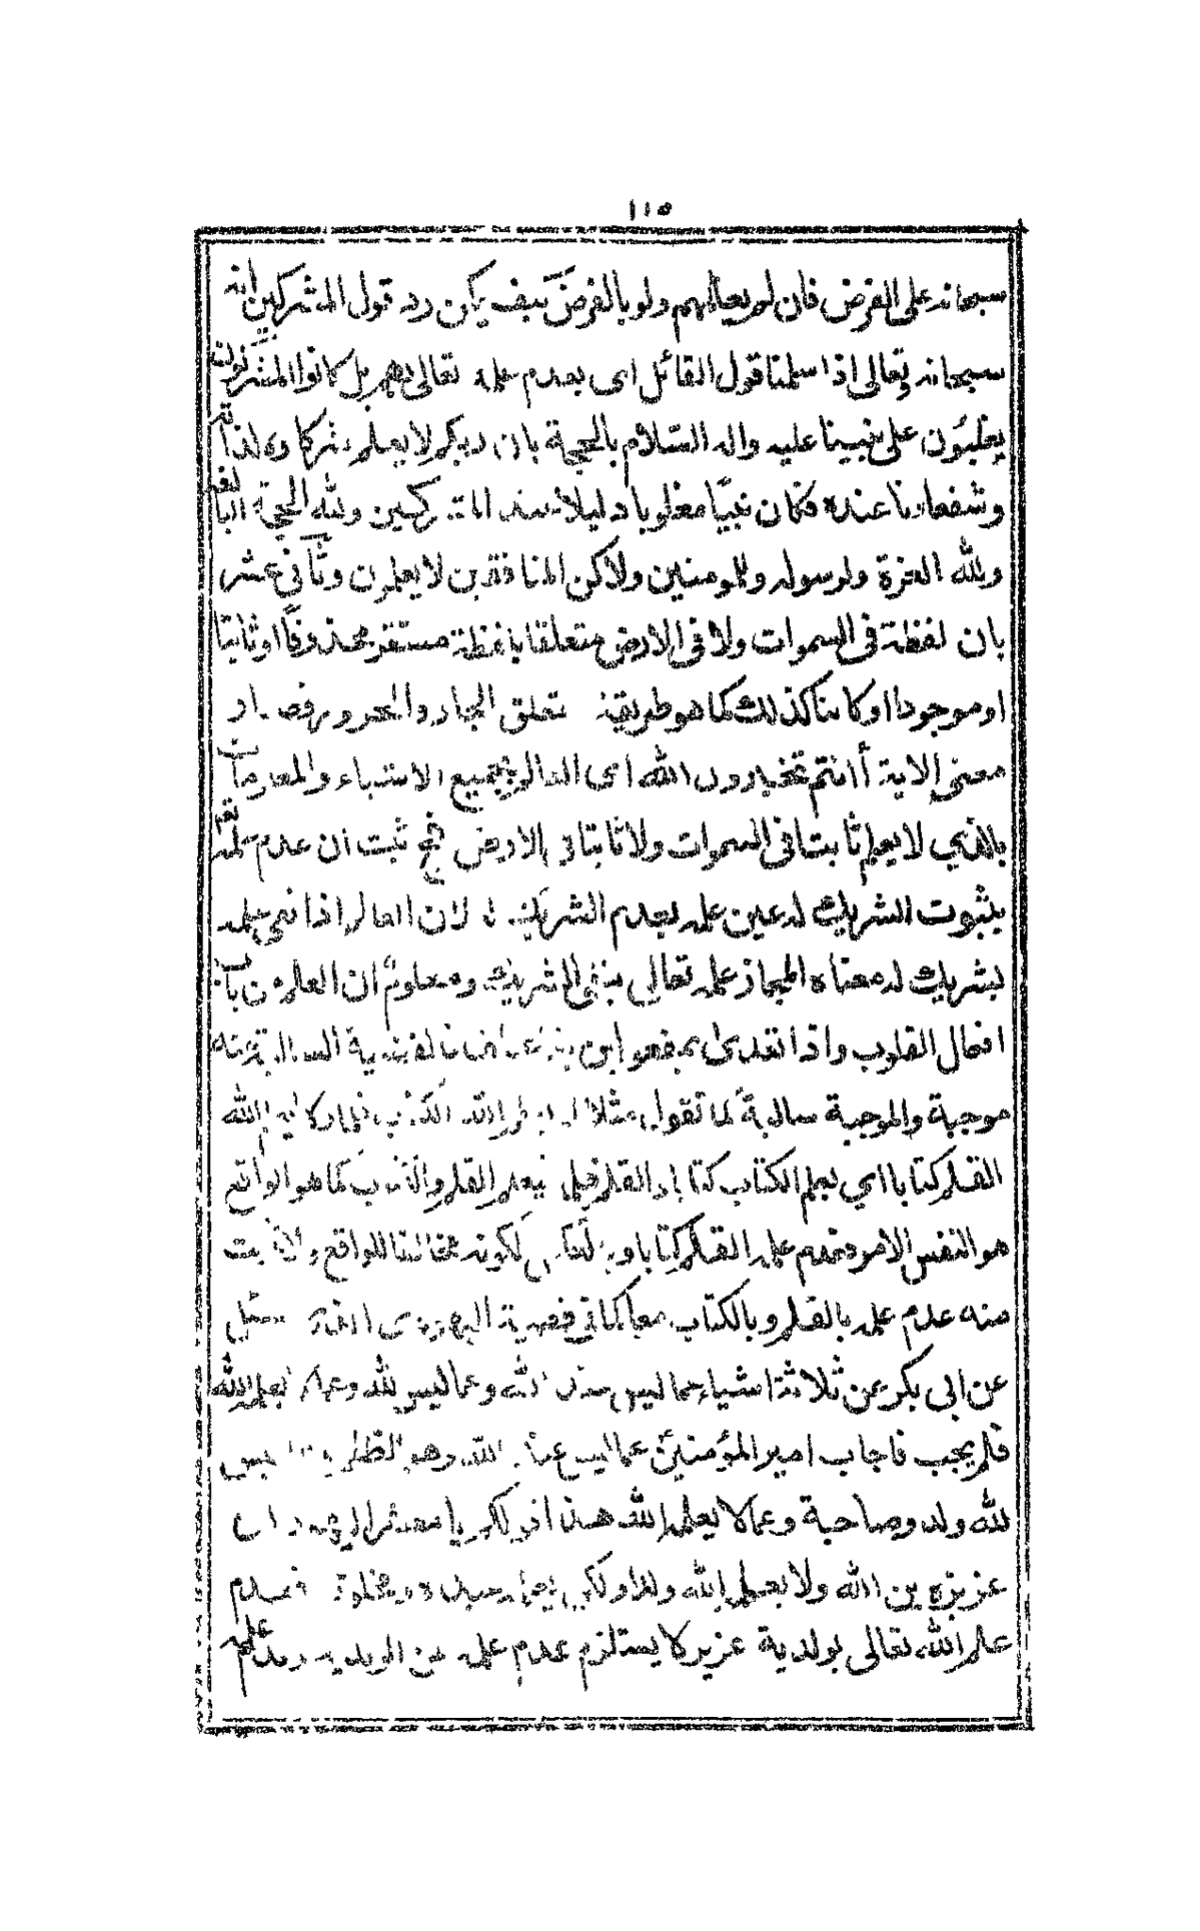 ١١٥
سبحانه على الفرض فان لم يعلمهم ولو بالفرض كيف يكون رد قول المشركين انه
سبحانه وتعالى اذا سلمنا قول القائل اى بعدم علمه تعالى بهم بل كانوا المشركون
يغلبون على نبينا عليه واله السّلام بالحجة بان ربكم لا يعلم شركاؤه لذاته
وشفعاءنا عنده فكان نبيّا مغلوبا دليلا عند المشركين ولله الحجة البالغة
ولله العزة ولرسوله وللمومنين ولاكن المنافقين لا يعلمون وثانى عشر
بان لفظة فى السموات ولا فى الارض متعلقا بلفظة مستقر محذوفا او ثابتا
او موجودا او كائنا كذلك كما هو طريقة تعلق الجار والمجرور فصار
معنى الاية أانتم تخبرون الله اى العالم بجميع الاشياء والمعدومات
بالذي لا يعلم ثابتا فى السموات ولا ثابتا فى الارض فح ثبت ان عدم علمه
بثبوت الشريك له عين علمه بعدم الشريك له لان العالم اذا نفى علمه
بشريك له معناه المجاز علمه تعالى بنفى الشريك ومعلوم ان العلم من باب
افعال القلوب واذا تعدى بمفعولين السالبة
موجبة والموجبة سالبة كما تقول مثلا الله
القلم كتابا اي يعلم الكتاب كتابا والقلم قلما فيعلم القلم والكتاب كما هو الواقع
هو النفس الامر وعدم علمه القلم كتابا وبالعكس لكونه مخالفا للواقع ولا يثبت
منه عدم علمه بالقلم وبالكتاب معا كما فى قصة اليهودى الذى سئل
عن ابى بكر عن ثلاثة اشياء عما ليس عند الله وعما ليس لله وعما لا يعلم الله
فلم يجب فاجاب امير المؤمنين عما ليس عند الله وهو الظلم ليس
لله ولد وصاحبة وعما لا يعلمه الله هذا قولكم يا معشر اليهود ان
عزير بن الله ولا يعلم الله ولدا ولكن يعلم عبده ومخلوقه فعدم
علم الله تعالى بولدية عزير لا يستلزم عدم علمه عن الولدية علمه